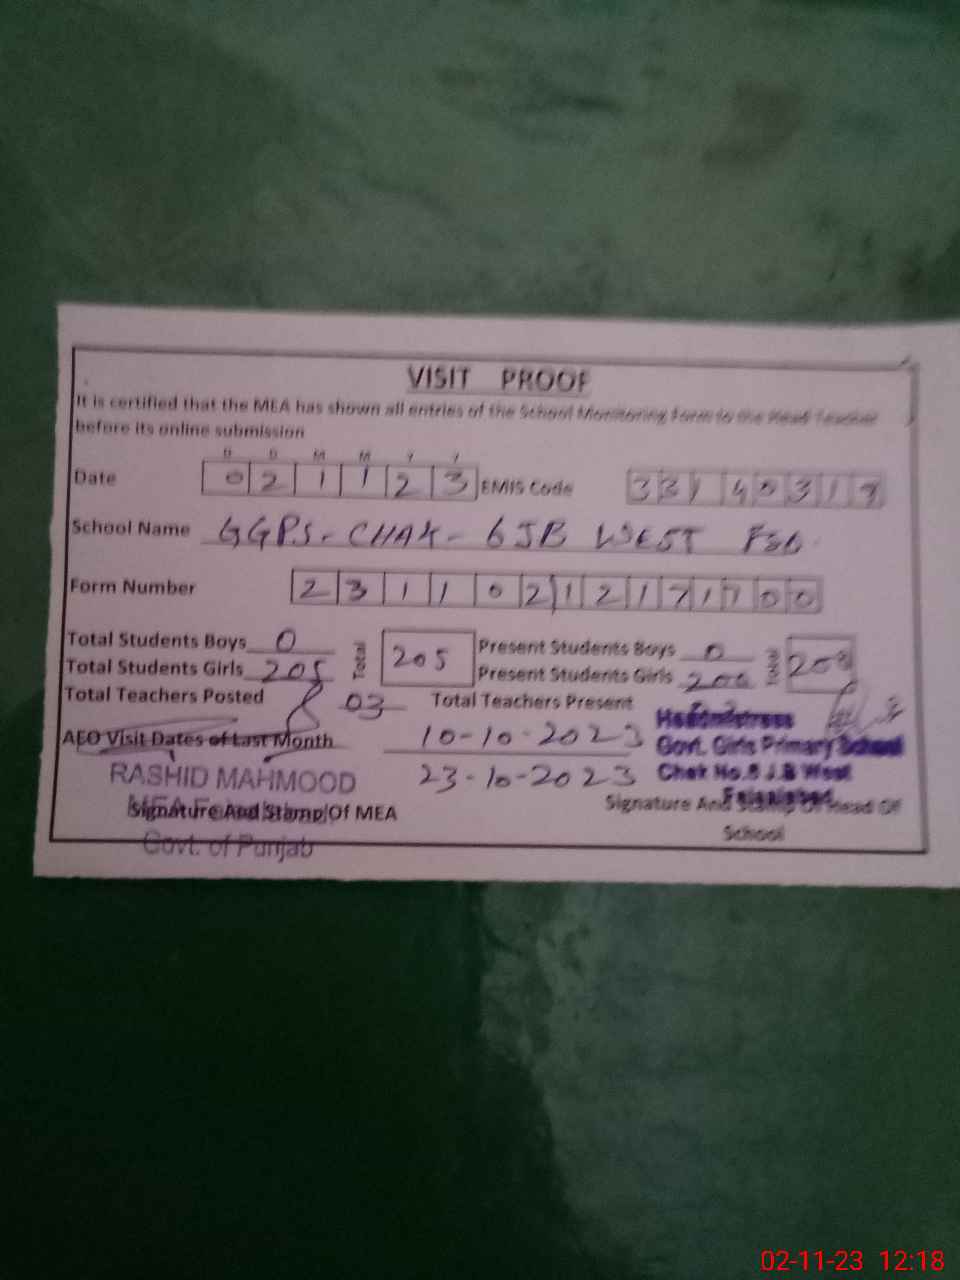 VISIT PROOF
It is certified that the MEA has shown all entries of the School Monitoring Form to the Head Teacher
before its online submission
D D M M Y Y
Date 0 2 1 1 2 3 EMIS Code
School Name GGPS - CHAK - 6JB WEST FSD
Form Number 2 3 1 1 0 2 1 2 1 7 1 7 0 0
Total Students Boys 0 Total 205 Present Students Boys 0 Total
Total Students Girls 205 Present Students Girls
Total Teachers Posted 03 Total Teachers Present
Headmistress
AEO Visit Dates of Last Month 10-10-2023 Govt. Girls Primary School
RASHID MAHMOOD 23-10-2023 Chak No.6 J.B West
Faisalabad
Signature And Stamp Of MEA Signature And Stamp Of Head Of
School
Govt. of Punjab
02-11-23 12:18